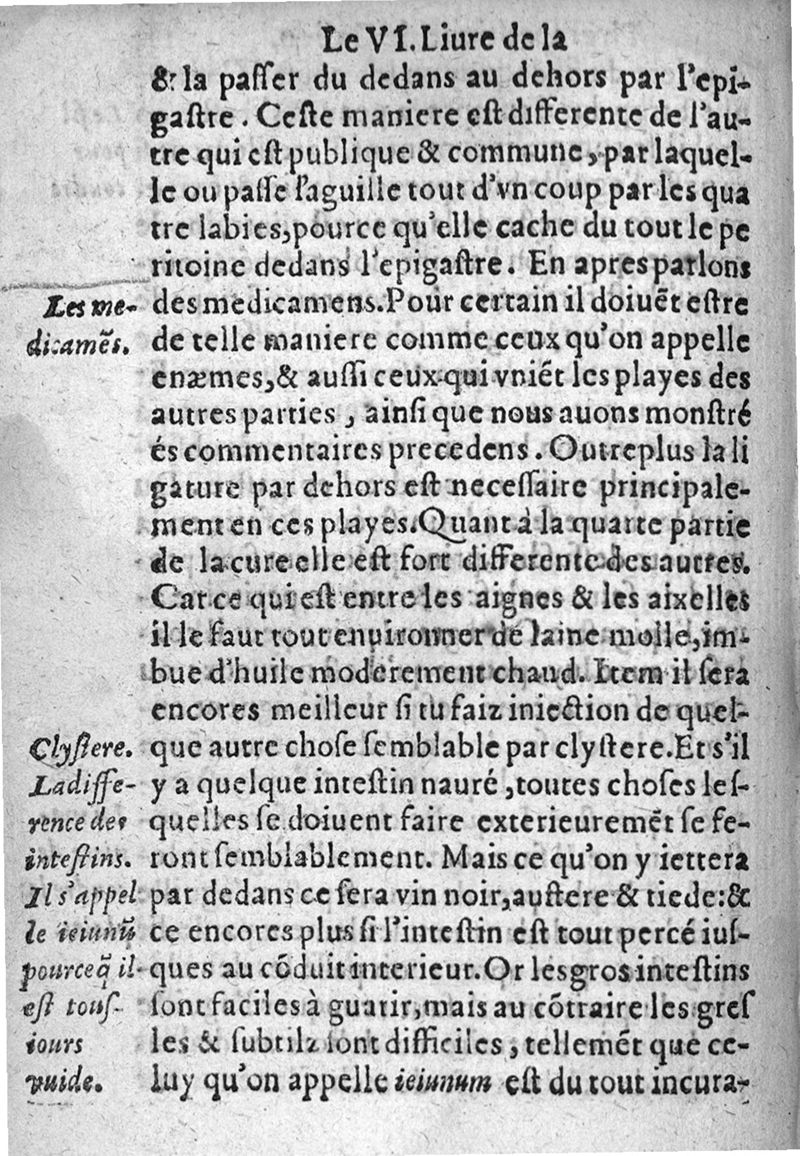 Le VI. Liure de la
& la paſſer du dedans au dehors par l'epi-
gaſtre. Ceſte maniere eſt differente de l'au-
tre qui eſt publique & commune, par laquel-
le ou paſſe l'aguille tout d'vn coup par les qua
tre labies, pource qu'elle cache du tout le pe
ritoine dedans l'epigaſtre. En apres parlons
des medicamens. Pour certain il doiuẽt eſtre
de telle maniere comme ceux qu'on appelle
enæmes, & auſſi ceux qui vniẽt les playes des
autres parties, ainſi que nous auons monſtré
és commentaires precedens. Outreplus la li
gature par dehors eſt neceſſaire principale-
ment en ces playes. Quant à la quarte partie
de la cure elle eſt fort differente des autres.
Car ce qui eſt entre les aignes & les aixelles
il le faut tout enuironner de laine molle, im-
bue d'huile moderement chaud. Item il ſera
encores meilleur ſi tu faiz iniection de quel-
que autre choſe ſemblable par clyſtere. Et s'il
y a quelque inteſtin nauré, toutes choſes leſ-
quelles ſe doiuent faire exterieuremẽt ſe fe-
ront ſemblablement. Mais ce qu'on y iettera
par dedans ce ſera vin noir, auſtere & tiede: &
ce encores plus ſi l'inteſtin eſt tout percé iuſ-
ques au cõduit interieur. Or les gros inteſtins
ſont faciles à guarir, mais au cõtraire les greſ
les & ſubtilz ſont difficiles, tellemẽt que ce-
luy qu'on appelle ieiunum eſt du tout incura-
Les me-
dicamẽs.
Clyſtere.
La diffe-
rence des
inteſtins.
Il s'appel
le ieiunũ
pource q̃ il
eſt touſ-
iours
vuide.